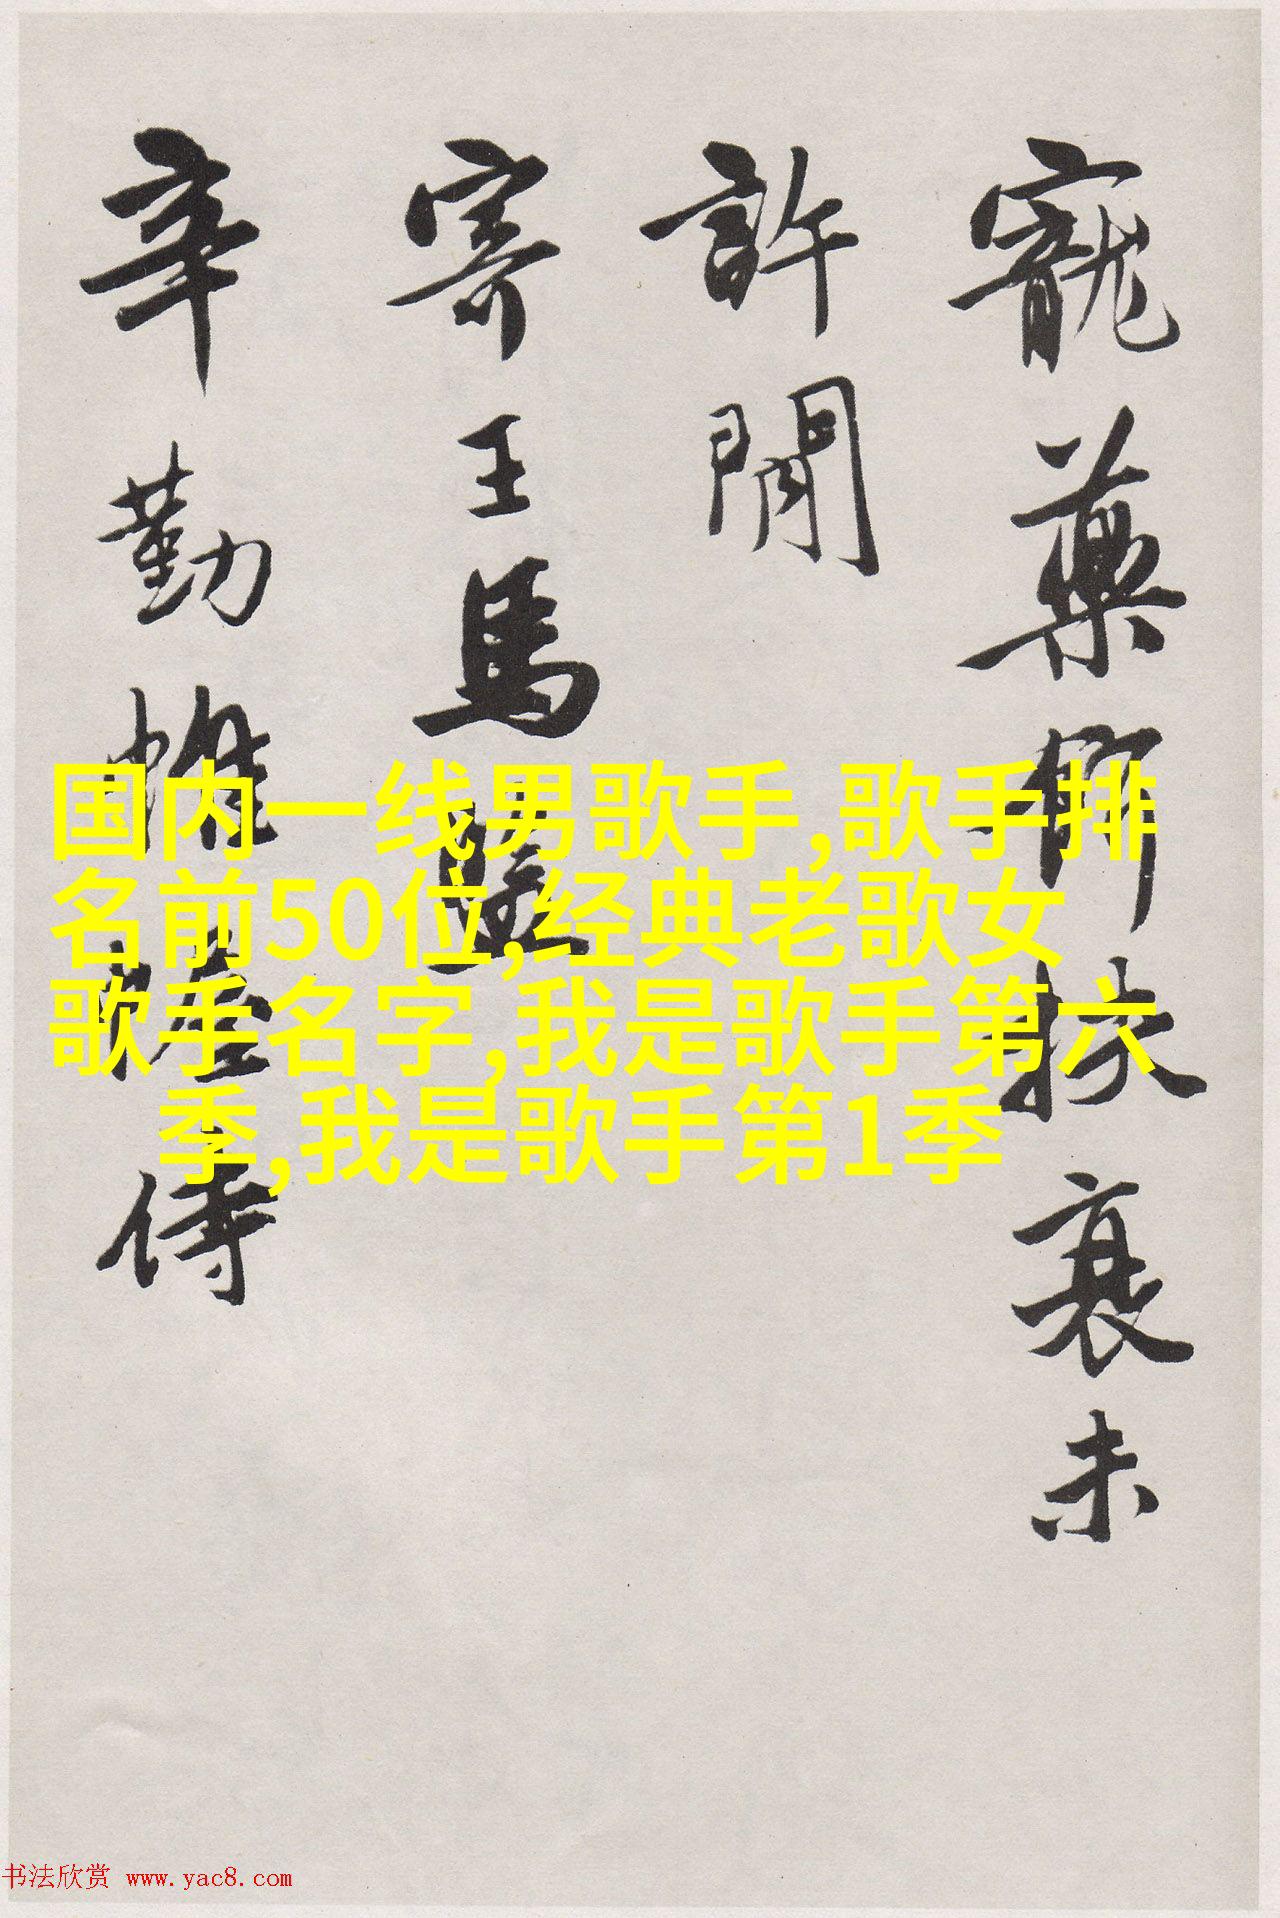 寵藥扶衰未
許閒
寄王馬監
辛勤帷幄侍
国内一线男歌手,歌手排
名前50位,经典老歌女
歌手名字,我是歌手第六
季,我是歌手第1季
书法欣赏 www.yac8.com